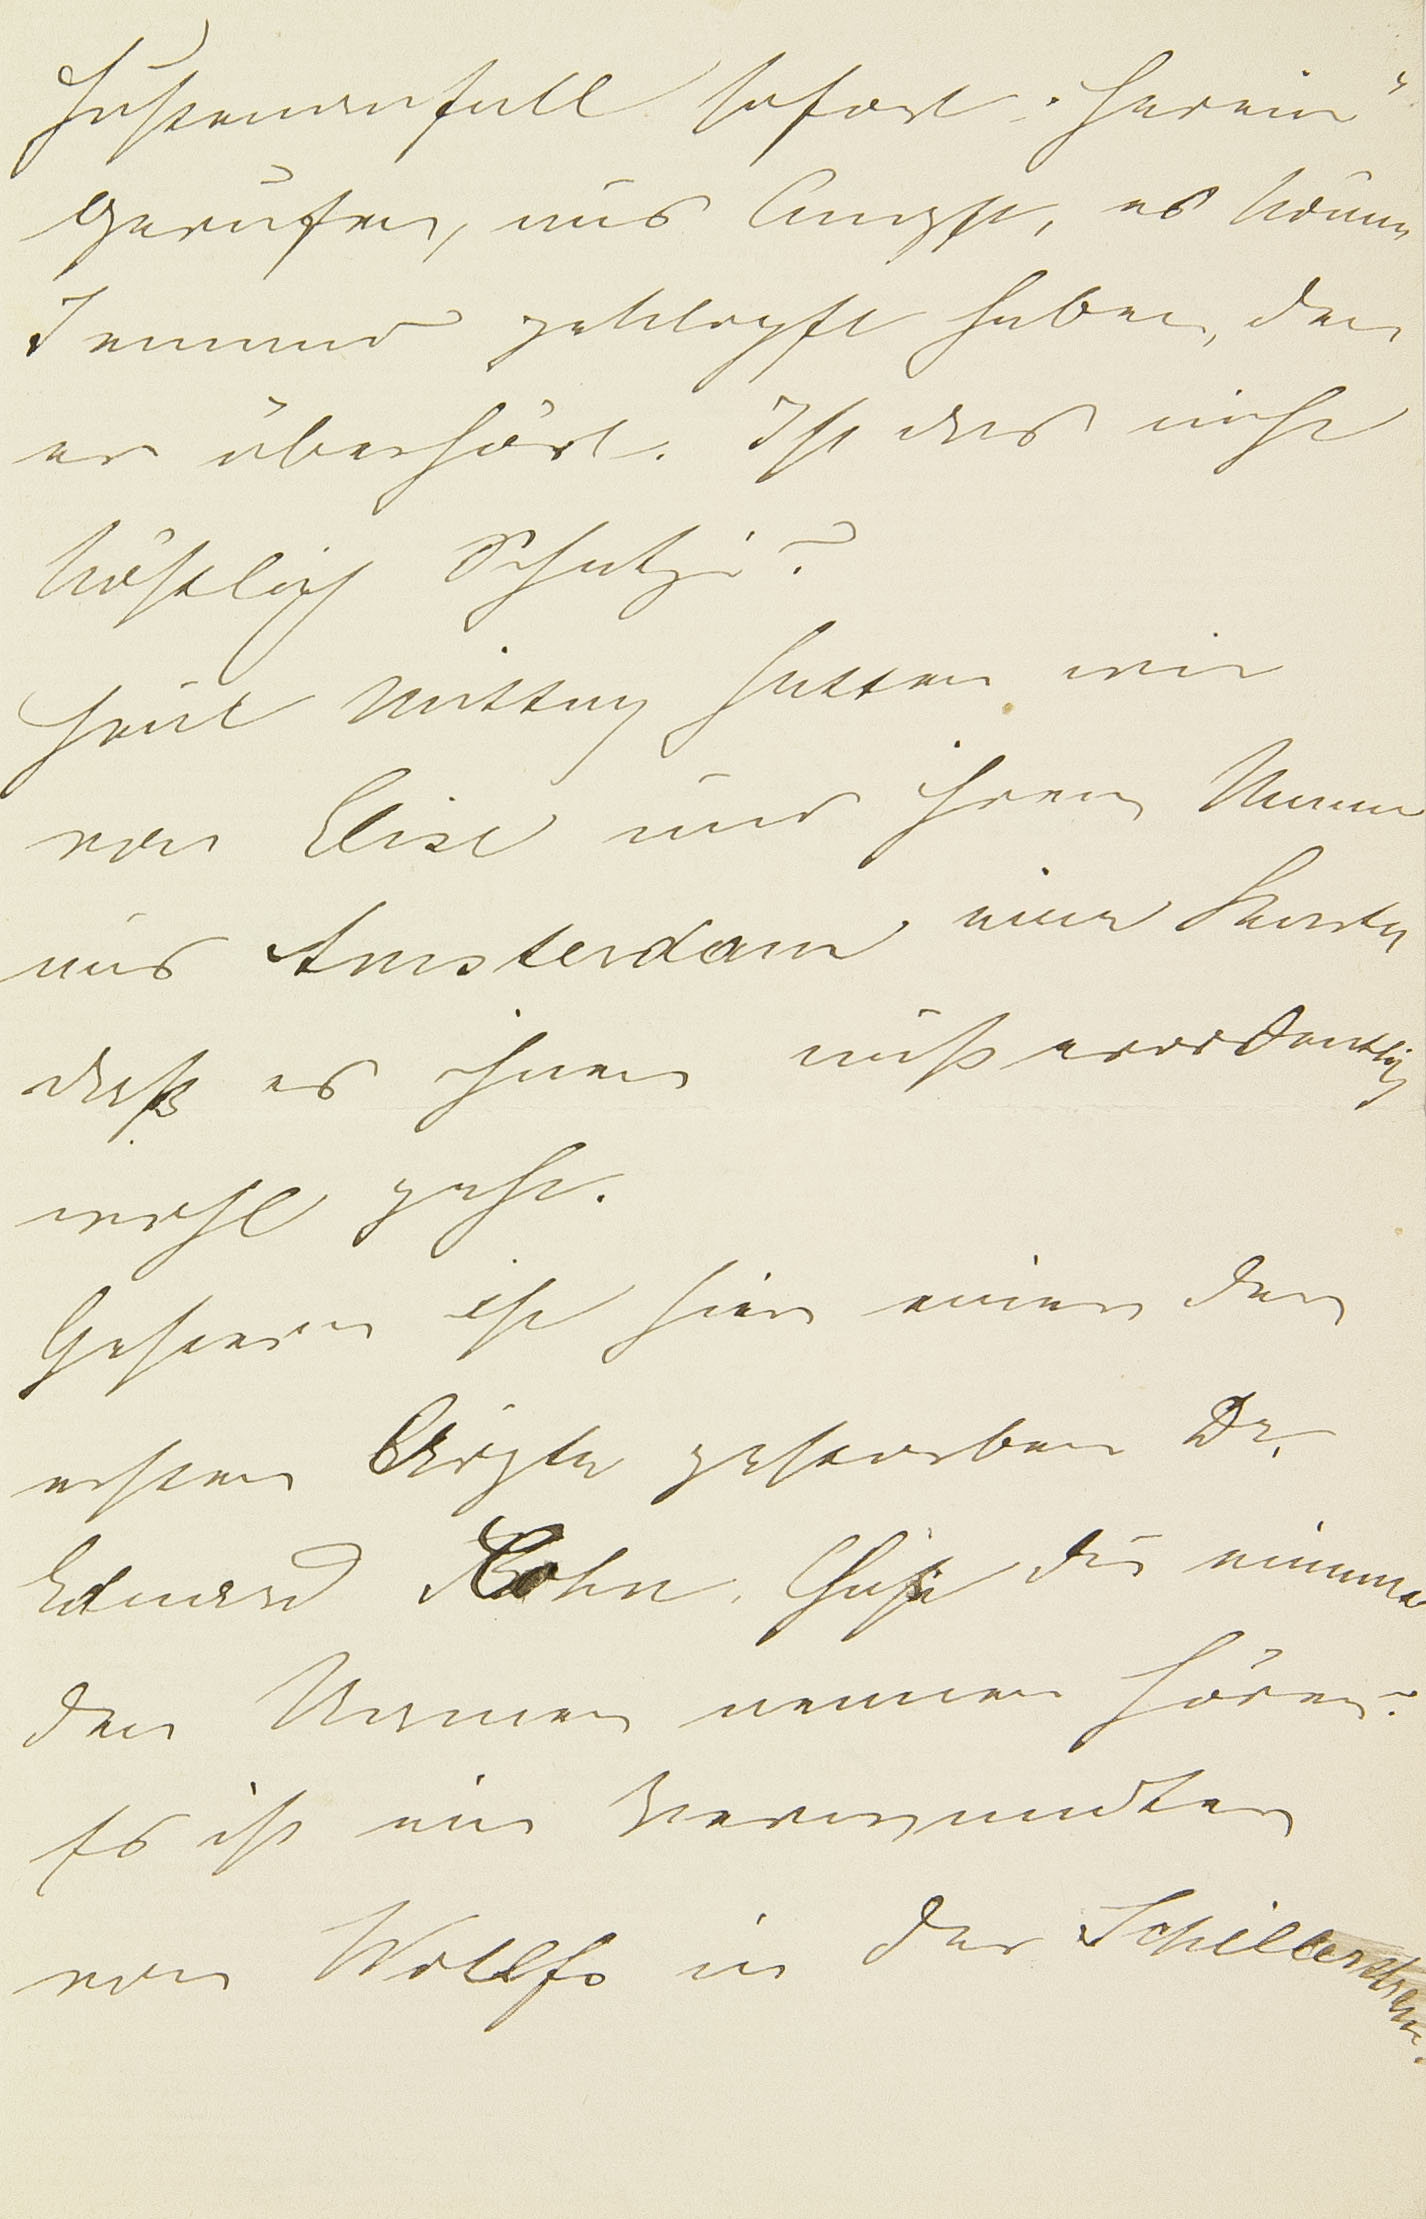 Hustenanfall sofort „Herein“
gerufen, aus Angst, es könne
Jemand geklopft haben, den
er überhört. Ist das nicht
köstlich Schatzi?
Heut Mittag hatten wir
von Elise und ihrem Manne
aus Amsterdam eine Karte
daß es ihnen außerordentlich
wohl geht.
Gestern ist hier einer der
ersten Ärzte gestorben Dr.
Eduard Cohn. Hast du einmal
den Namen nennen hören?
Es ist ein Verwandter
von Wolffs in der Schillerstraße.